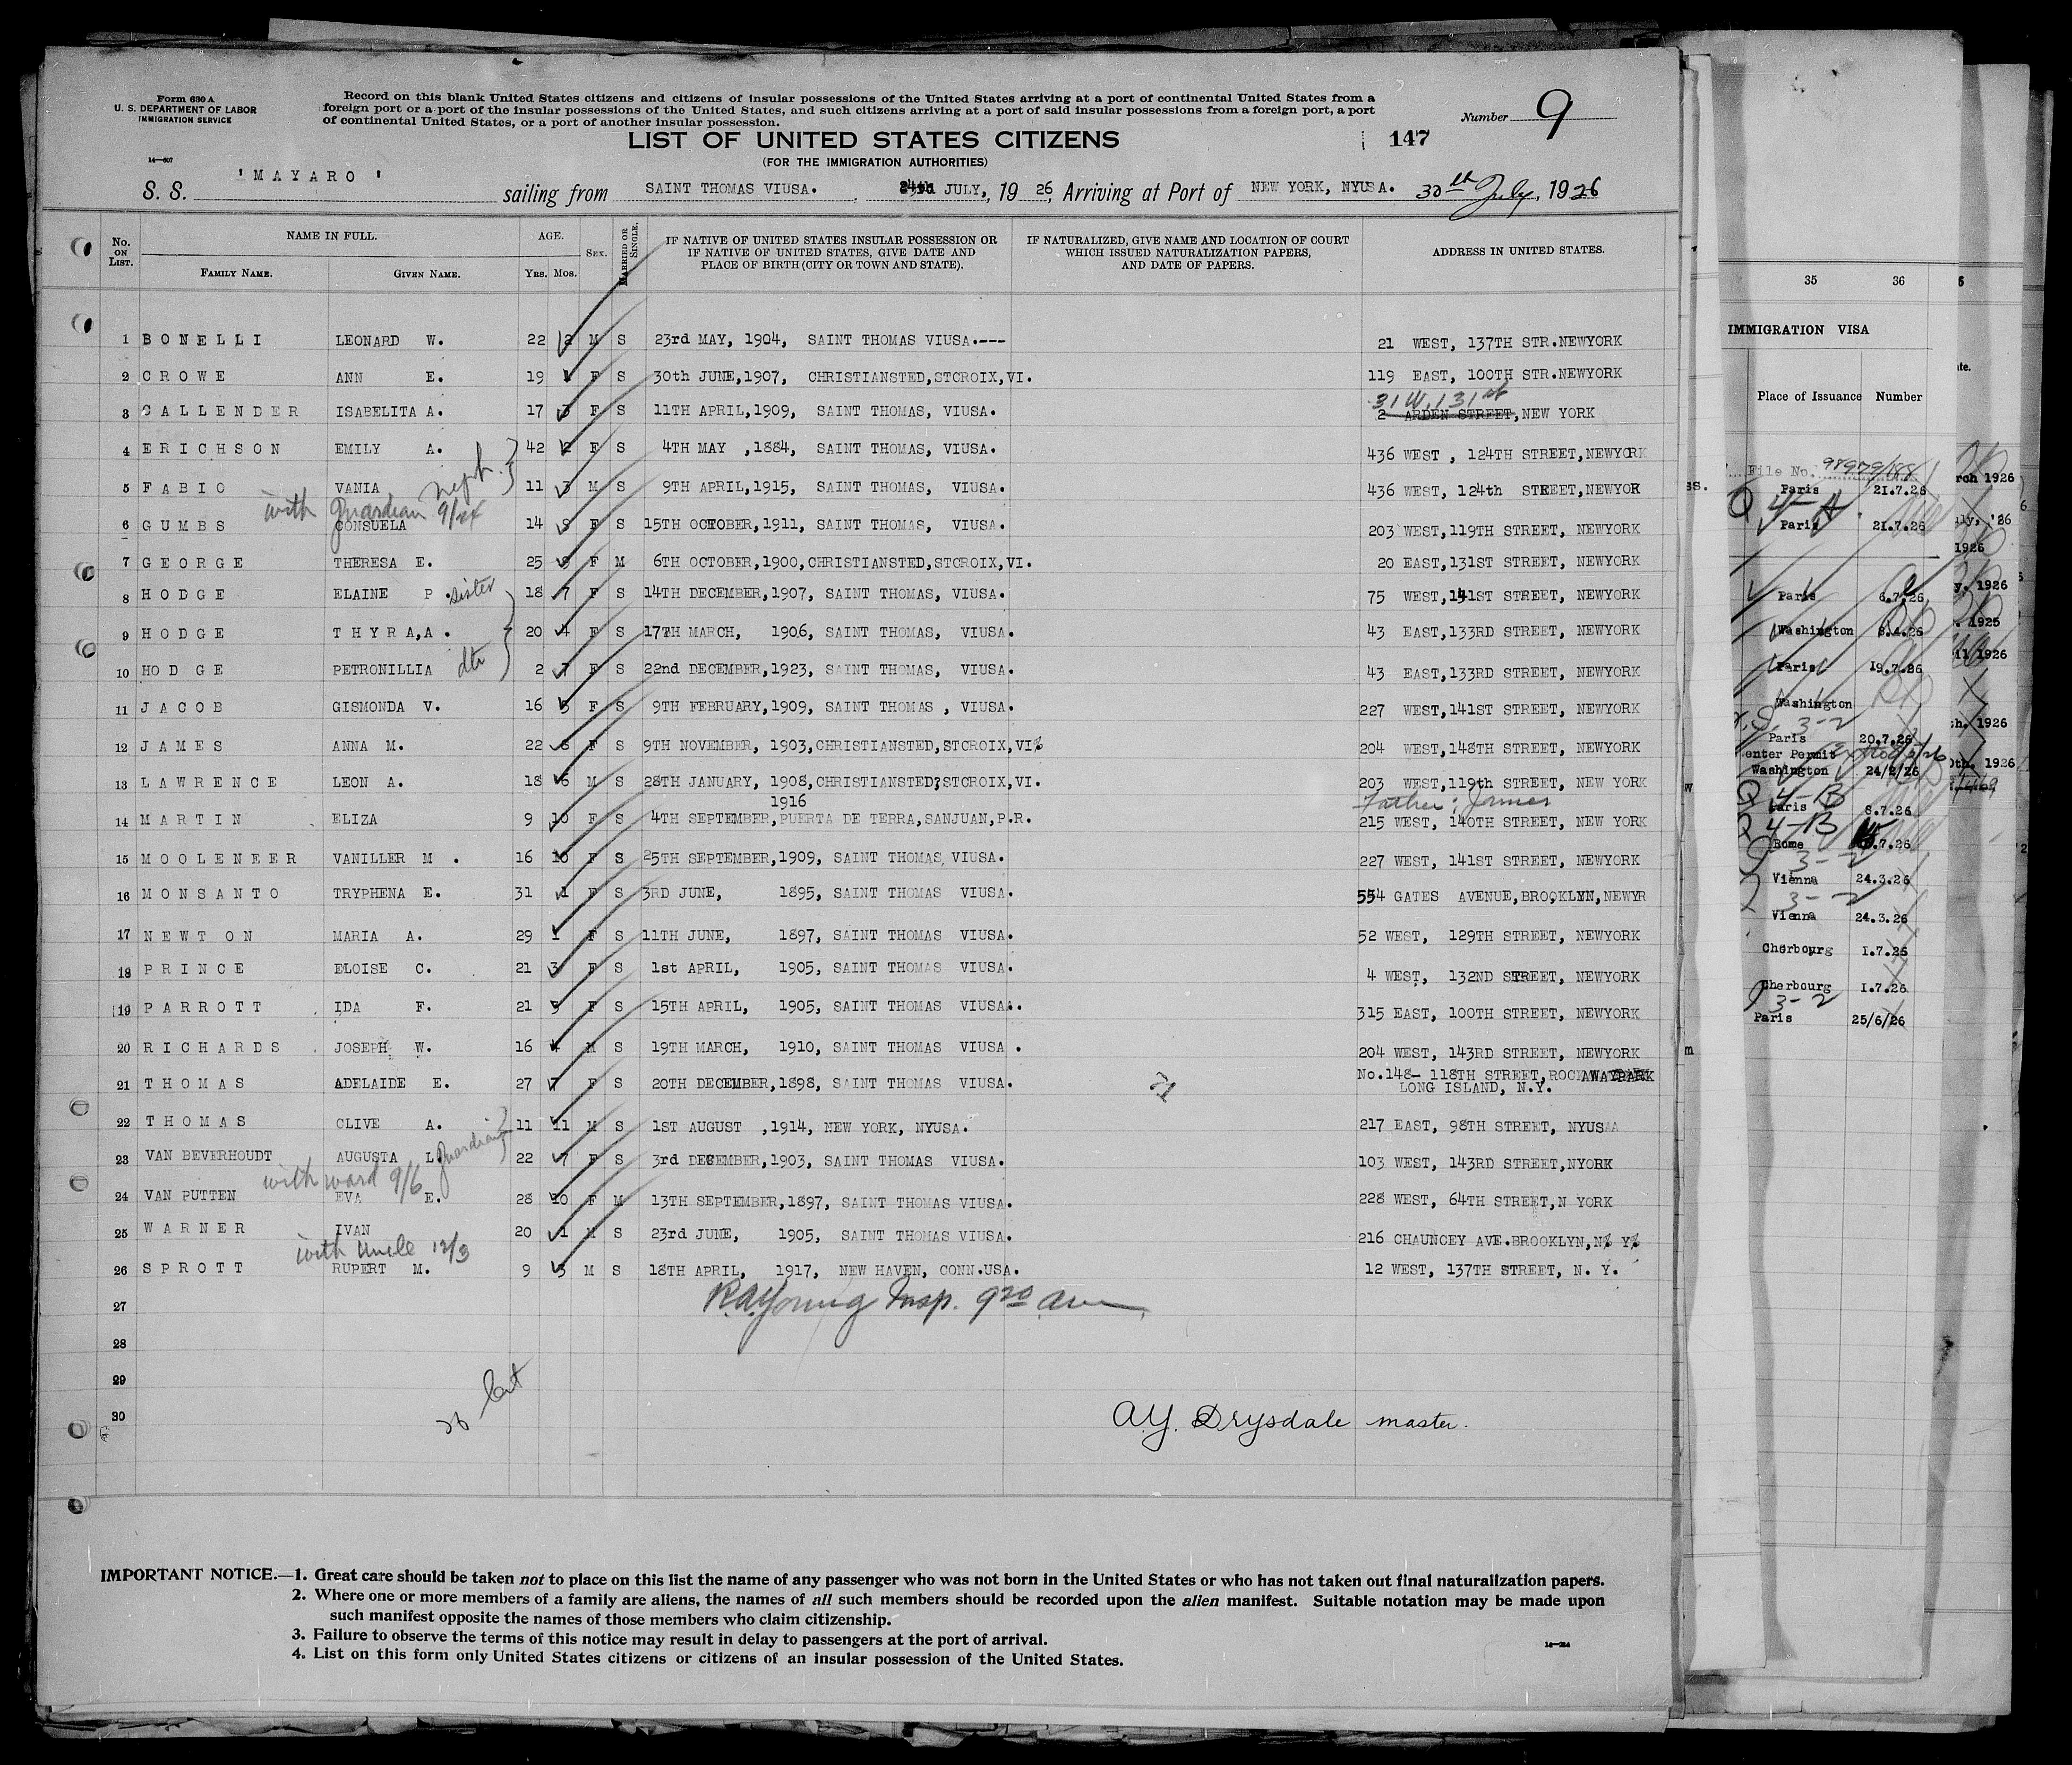 Form 630 A
U. S. DEPARTMENT OF LABOR
IMMIGRATION SERVICE
14—607
Record on this blank United States citizens and citizens of insular possessions of the United States arriving at a port of continental United States from a
foreign port or a port of the insular possessions of the United States, and such citizens arriving at a port of said insular possessions from a foreign port, a port
of continental United States, or a port of another insular possession.
Number 9
LIST OF UNITED STATES CITIZENS
147
(FOR THE IMMIGRATION AUTHORITIES)
S. S. 'MAYARO' sailing from SAINT THOMAS VIUSA. JULY, 1926, Arriving at Port of NEW YORK, NYUSA. 30th July, 1926
No. ON LIST. NAME IN FULL. AGE. SEX. MARRIED OR SINGLE. IF NATIVE OF UNITED STATES INSULAR POSSESSION OR IF NATIVE OF UNITED STATES, GIVE DATE AND PLACE OF BIRTH (CITY OR TOWN AND STATE). IF NATURALIZED, GIVE NAME AND LOCATION OF COURT WHICH ISSUED NATURALIZATION PAPERS, AND DATE OF PAPERS. ADDRESS IN UNITED STATES.
FAMILY NAME. GIVEN NAME. Yrs. Mos.
1 BONELLI LEONARD W. 22 2 M S 23rd MAY, 1904, SAINT THOMAS VIUSA.--- 21 WEST, 137TH STR.NEWYORK
2 CROWE ANN E. 19 1 F S 30th JUNE,1907, CHRISTIANSTED,STCROIX,VI. 119 EAST, 100TH STR.NEWYORK
31 W. 131st
3 CALLENDER ISABELITA A. 17 3 F S 11TH APRIL,1909, SAINT THOMAS, VIUSA. 2 ARDEN STREET,NEW YORK
4 ERICHSON EMILY A. 42 2 F S 4TH MAY ,1884, SAINT THOMAS, VIUSA. 436 WEST , 124TH STREET,NEWYORK
5 FABIO VANIA neph. 11 3 M S 9TH APRIL,1915, SAINT THOMAS, VIUSA. 436 WEST, 124th STREET,NEWYOR
with Guardian 9/24
6 GUMBS CONSUELA 14 9 F S 15TH OCTOBER,1911, SAINT THOMAS, VIUSA. 203 WEST,119TH STREET, NEWYORK
7 GEORGE THERESA E. 25 9 F M 6TH OCTOBER,1900,CHRISTIANSTED,STCROIX,VI. 20 EAST,131ST STREET, NEWYORK
8 HODGE ELAINE P. sister 18 7 F S 14TH DECEMBER,1907, SAINT THOMAS, VIUSA. 75 WEST,141ST STREET, NEWYORK
9 HODGE THYRA,A. 20 4 F S 17TH MARCH, 1906, SAINT THOMAS, VIUSA. 43 EAST,133RD STREET, NEWYORK
10 HODGE PETRONILLIA dtr 2 7 F S 22nd DECEMBER,1923, SAINT THOMAS, VIUSA. 43 EAST,133RD STREET, NEWYORK
11 JACOB GISMONDA V. 16 5 F S 9TH FEBRUARY,1909, SAINT THOMAS , VIUSA. 227 WEST,141ST STREET, NEWYORK
12 JAMES ANNA M. 22 8 F S 9TH NOVEMBER, 1903,CHRISTIANSTED,STCROIX,VI% 204 WEST,148TH STREET, NEWYORK
13 LAWRENCE LEON A. 18 6 M S 28TH JANUARY, 1908,CHRISTIANSTED?STCROIX,VI. 203 WEST,119th STREET, NEW YORK
1916 Father: James
14 MARTIN ELIZA 9 10 F S 4TH SEPTEMBER,PUERTA DE TERRA,SANJUAN,P.R. 215 WEST, 140TH STREET, NEW YORK
15 MOOLENEER VANILLER M . 16 10 F S 25TH SEPTEMBER,1909, SAINT THOMAS, VIUSA. 227 WEST, 141ST STREET, NEWYORK
16 MONSANTO TRYPHENA E. 31 1 F S 3RD JUNE, 1895, SAINT THOMAS VIUSA. 554 GATES AVENUE,BROOKLYN,NEWYR
17 NEWTON MARIA A. 29 1 F S 11TH JUNE, 1897, SAINT THOMAS VIUSA. 52 WEST, 129TH STREET, NEWYORK
18 PRINCE ELOISE C. 21 3 F S 1st APRIL, 1905, SAINT THOMAS VIUSA. 4 WEST, 132ND STREET, NEWYORK
19 PARROTT IDA F. 21 3 F S 15TH APRIL, 1905, SAINT THOMAS VIUSA.. 315 EAST, 100TH STREET, NEWYORK
20 RICHARDS JOSEPH W. 16 4 M S 19TH MARCH, 1910, SAINT THOMAS VIUSA . 204 WEST, 143RD STREET, NEWYORK
21 THOMAS ADELAIDE E. 27 7 F S 20TH DECEMBER,1898, SAINT THOMAS VIUSA. No.148- 118TH STREET,ROCKAWAYPARK
LONG ISLAND, N.Y.
22 THOMAS CLIVE A. 11 11 M S 1ST AUGUST ,1914, NEW YORK, NYUSA. 217 EAST, 98TH STREET, NYUSA
23 VAN BEVERHOUDT AUGUSTA L. Guardian 22 7 F S 3rd DECEMBER,1903, SAINT THOMAS VIUSA. 103 WEST, 143RD STREET,NYORK
with ward 9/6
24 VAN PUTTEN EVA E. 28 10 F M 13TH SEPTEMBER,1897, SAINT THOMAS VIUSA. 228 WEST, 64TH STREET,N YORK
25 WARNER IVAN 20 1 M S 23rd JUNE, 1905, SAINT THOMAS VIUSA. 216 CHAUNCEY AVE.BROOKLYN,N% Y%
with Uncle 12/3
26 SPROTT RUPERT M. 9 3 M S 18TH APRIL, 1917, NEW HAVEN, CONN.USA. 12 WEST, 137TH STREET, N. Y.
27 R.A.Young Insp. 9 20 am
28
29
30
26 Cert
A.Y. Drysdale master.
IMPORTANT NOTICE.—1. Great care should be taken not to place on this list the name of any passenger who was not born in the United States or who has not taken out final naturalization papers.
2. Where one or more members of a family are aliens, the names of all such members should be recorded upon the alien manifest. Suitable notation may be made upon
such manifest opposite the names of those members who claim citizenship.
3. Failure to observe the terms of this notice may result in delay to passengers at the port of arrival.
4. List on this form only United States citizens or citizens of an insular possession of the United States.
35 36
IMMIGRATION VISA
Place of Issuance Number
File No. 98979/188
Paris 21.7.26
Q 4-A
Paris 21.7.26
Paris 6.7.26
Washington 8.4.26
Paris 19.7.26
Washington
3-2
Paris 20.7.26
enter Permit
Washington 24/2/26
Q 4-B
Paris 8.7.26
Q 4-B
Rome .7.26
3-2
Vienna 24.3.26
3-2
Vienna 24.3.26
Cherbourg 1.7.26
Cherbourg 1.7.26
3-2
Paris 25/6/26
rch 1926
uly, '26
1926
y. 1926
. 1925
il 1926
th. 1926
0th. 1926